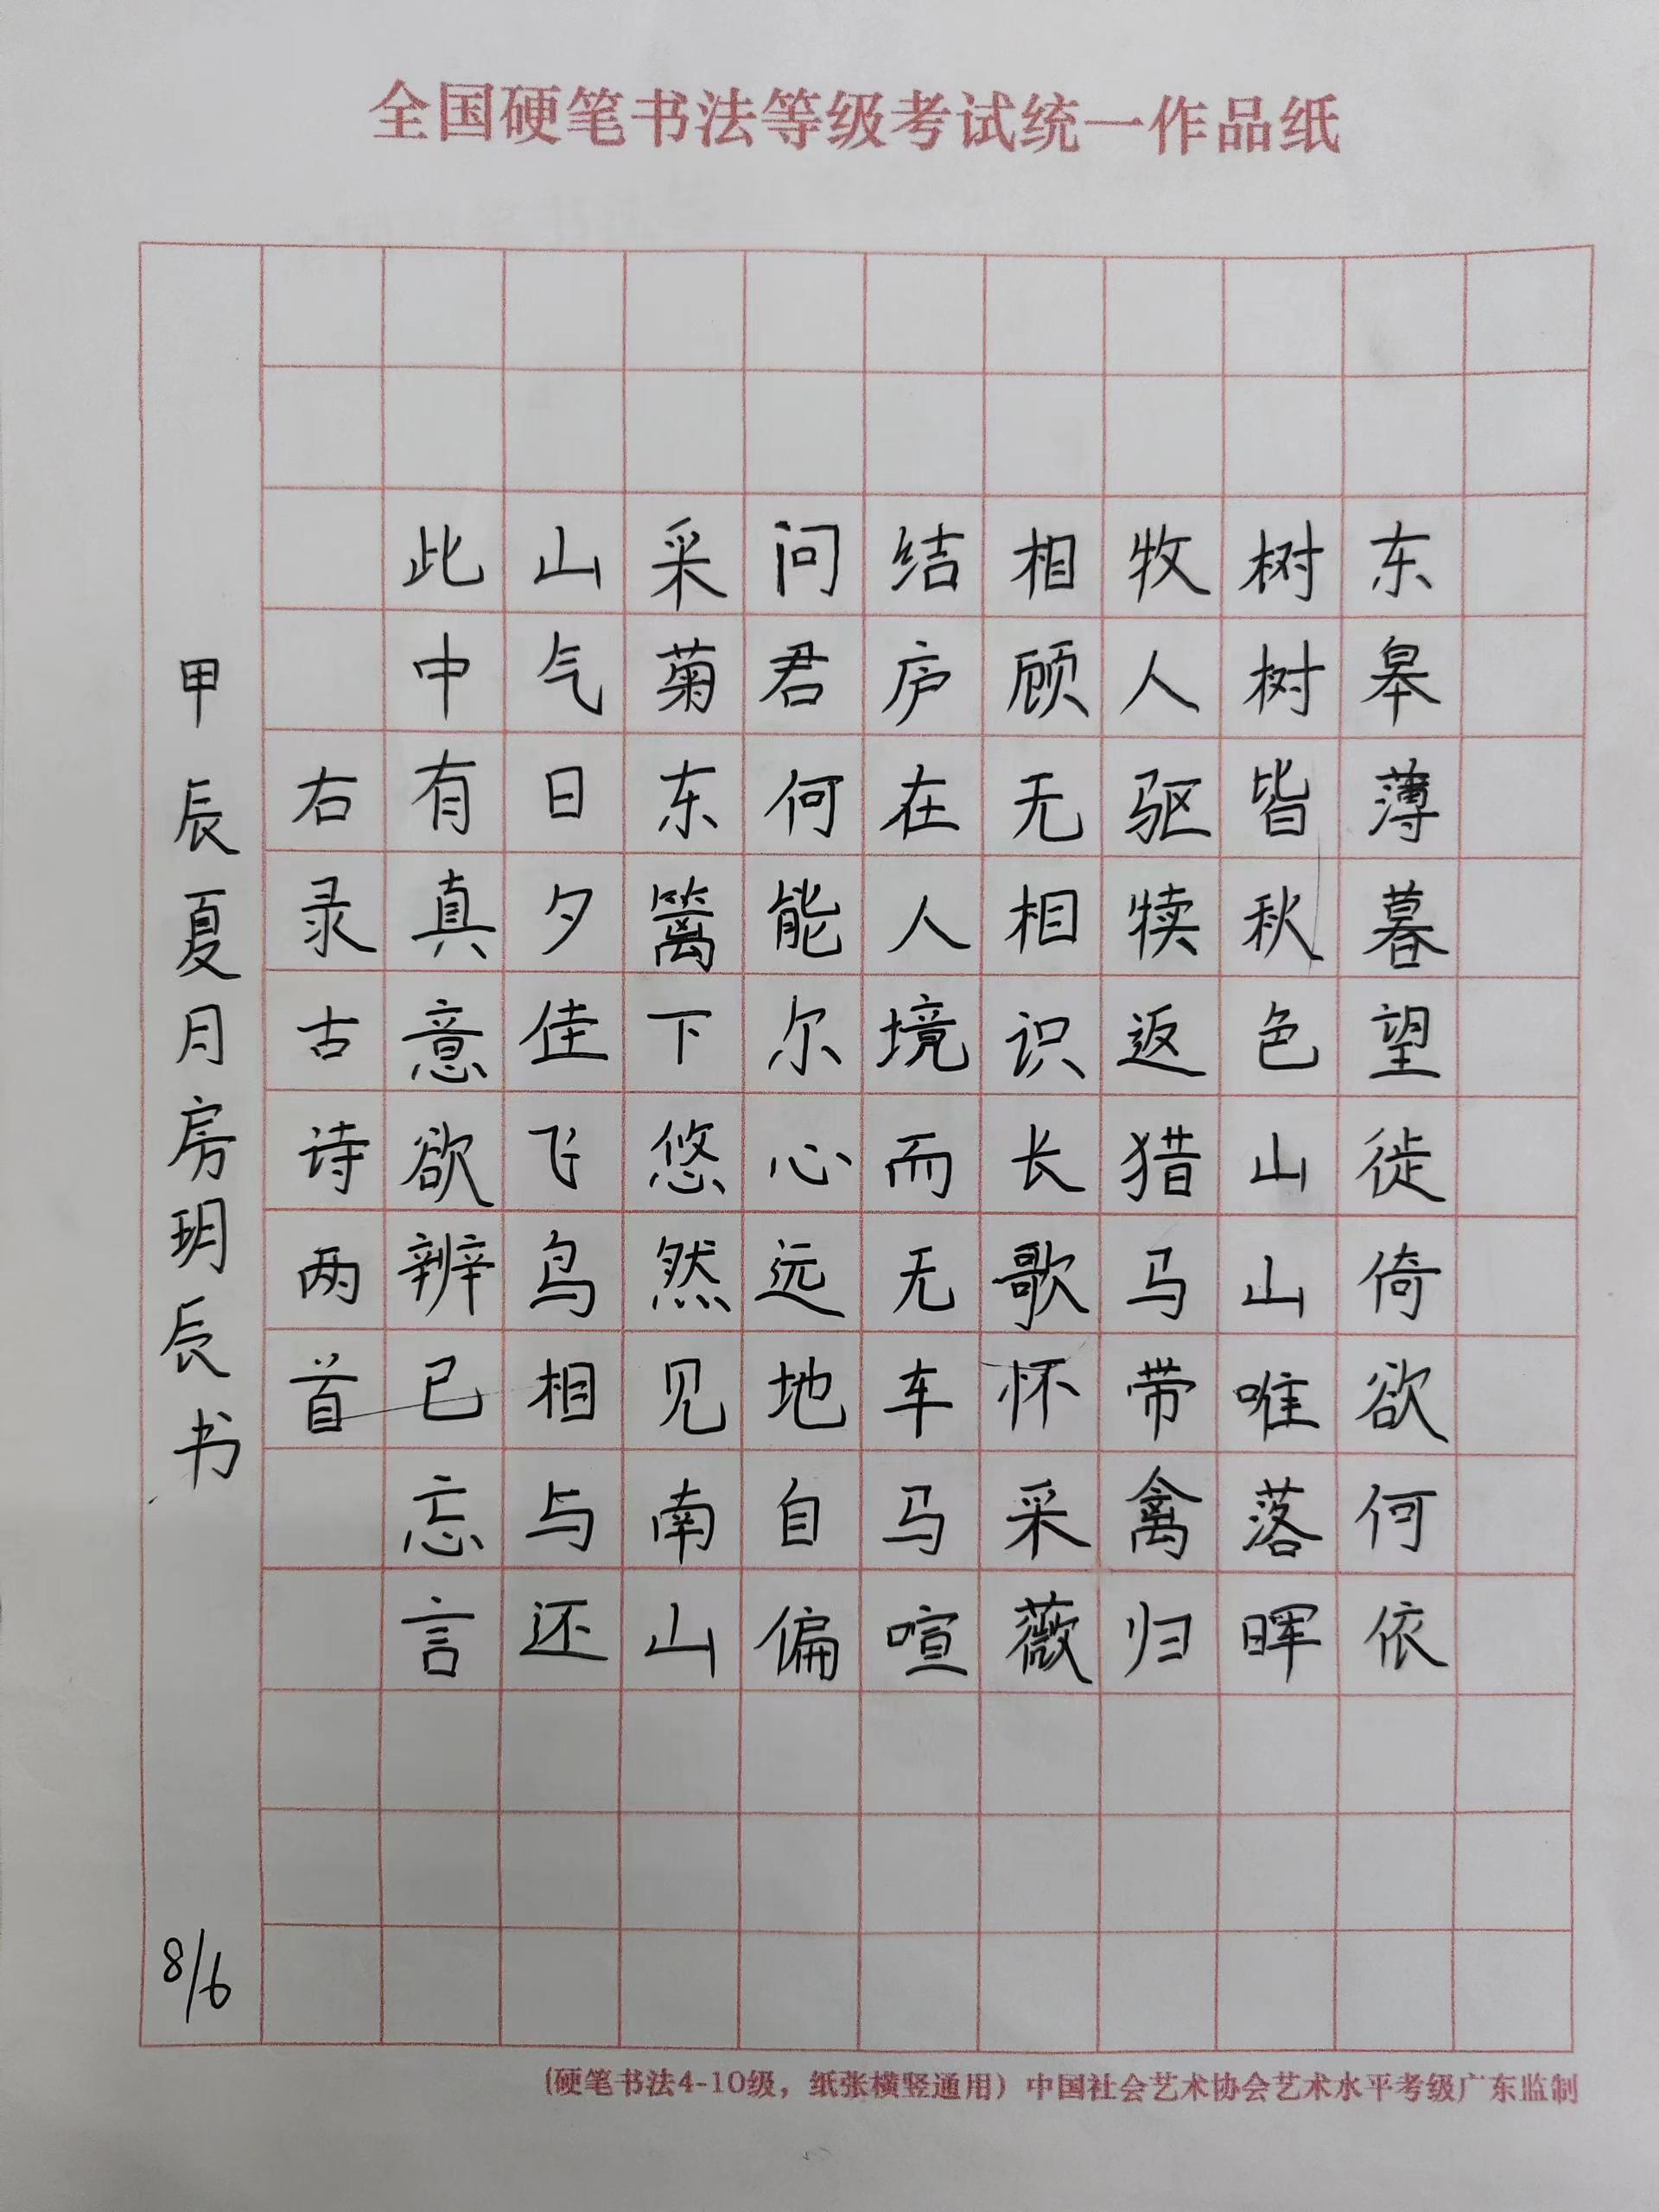 全国硬笔书法等级考试统一作品纸
东皋薄暮望徙倚欲何依
树树皆秋色山山唯落晖
牧人驱犊返猎马带禽归
相顾无相识长歌怀采薇
结庐在人境而无车马喧
问君何能尔心远地自偏
采菊东篱下悠然见南山
山气日夕佳飞鸟相与还
此中有真意欲辨已忘言
右录古诗两首
甲辰夏月房玥辰书
8/6
(硬笔书法4-10级，纸张横竖通用) 中国社会艺术协会艺术水平考级广东监制